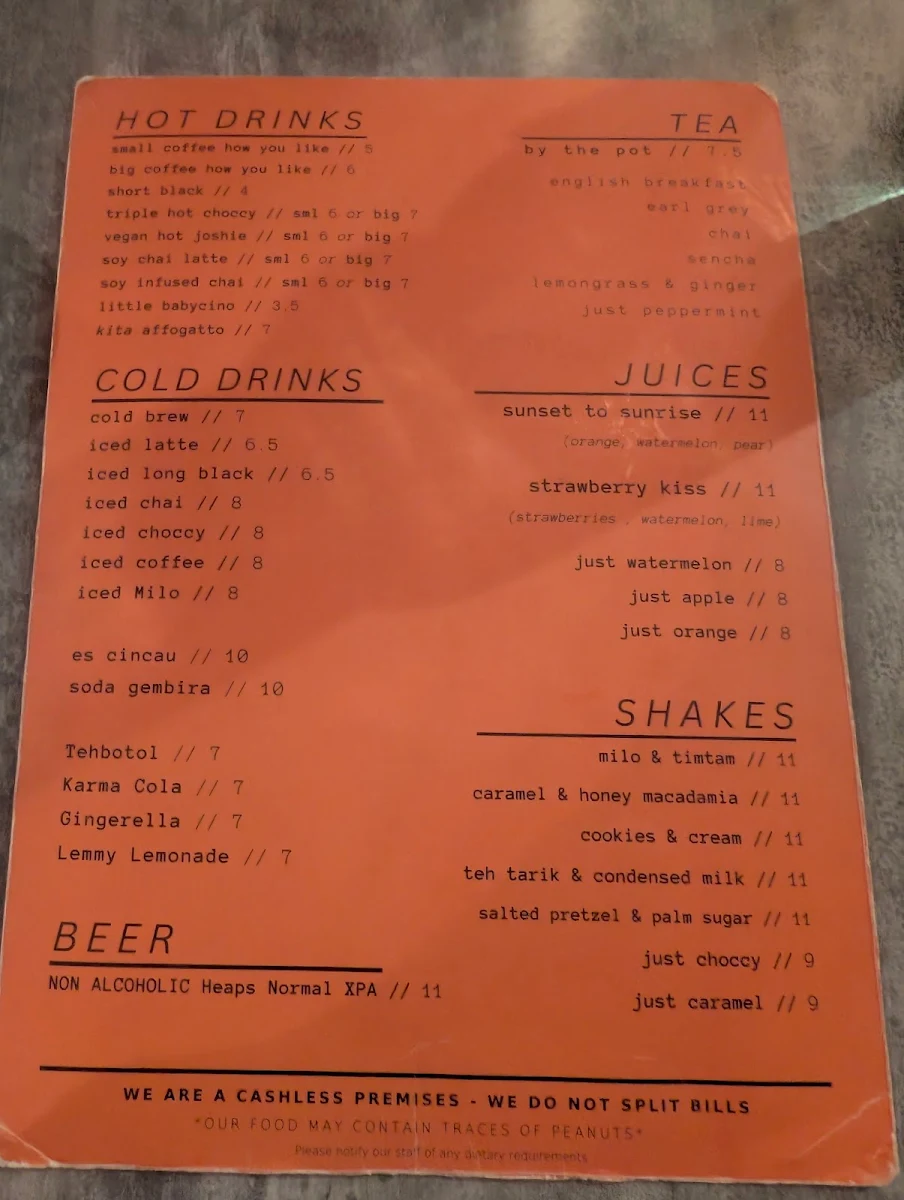 HOT DRINKS
small coffee how you like // 5
big coffee how you like // 6
short black // 4
triple hot choccy // sml 6 or big 7
vegan hot joshie // sml 6 or big 7
soy chai latte // sml 6 or big 7
soy infused chai // sml 6 or big 7
little babycino // 3.5
kita affogatto // 7
COLD DRINKS
cold brew // 7
iced latte // 6.5
iced long black // 6.5
iced chai // 8
iced choccy // 8
iced coffee // 8
iced Milo // 8
es cincau // 10
soda gembira // 10
Tehbotol // 7
Karma Cola // 7
Gingerella // 7
Lemmy Lemonade // 7
BEER
NON ALCOHOLIC Heaps Normal XPA // 11
TEA
by the pot // 7.5
english breakfast
earl grey
chai
sencha
lemongrass & ginger
just peppermint
JUICES
sunset to sunrise // 11
(orange, watermelon, pear)
strawberry kiss // 11
(strawberries , watermelon, lime)
just watermelon // 8
just apple // 8
just orange // 8
SHAKES
milo & timtam // 11
caramel & honey macadamia // 11
cookies & cream // 11
teh tarik & condensed milk // 11
salted pretzel & palm sugar // 11
just choccy // 9
just caramel // 9
WE ARE A CASHLESS PREMISES - WE DO NOT SPLIT BILLS
*OUR FOOD MAY CONTAIN TRACES OF PEANUTS*
Please notify our staff of any dietary requirements